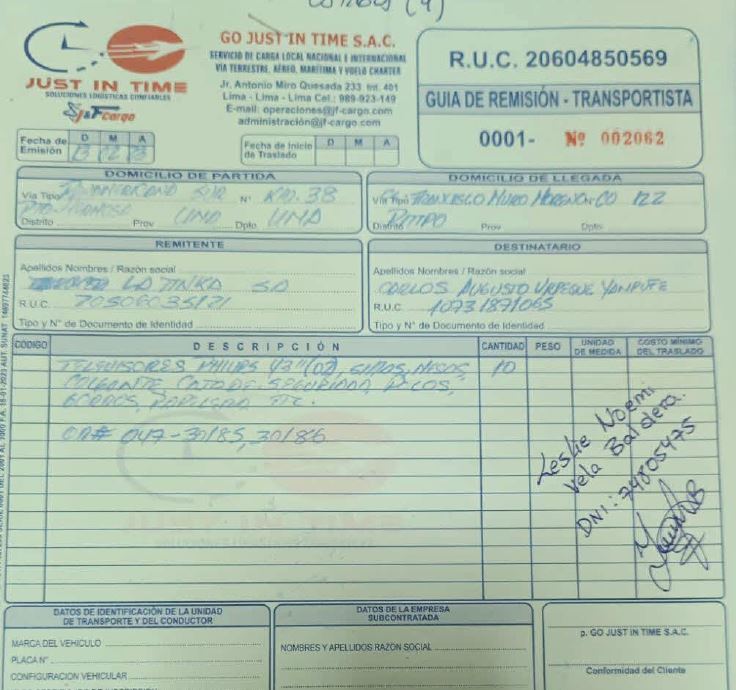 (4)
JUST IN TIME
SOLUCIONES LOGÍSTICAS CONFIABLES
J&F Cargo
GO JUST IN TIME S.A.C.
SERVICIO DE CARGA LOCAL NACIONAL E INTERNACIONAL
VIA TERRESTRE, AÉREO, MARITIMA Y VUELO CHARTER
Jr. Antonio Miro Quesada 233 Int. 401
Lima - Lima - Lima Cel.: 989-923-149
E-mail: operaciones@jf-cargo.com
administración@jf-cargo.com
R.U.C. 20604850569
GUIA DE REMISIÓN - TRANSPORTISTA
0001- Nº 002062
Fecha de Emisión D M A
13 02 23
Fecha de Inicio de Traslado D M A
DOMICILIO DE PARTIDA
Vía Tipo PANAMERICANA SUR Nº KM. 38
LIMA LIMA
Distrito Prov Dpto.
DOMICILIO DE LLEGADA
Vía Tipo FRANCISCO MURO 122
Distrito Prov Dpto.
REMITENTE
Apellidos Nombres / Razón social
LA TINKA SA
R.U.C. 20506035121
Tipo y N° de Documento de Identidad
DESTINATARIO
Apellidos Nombres / Razón social
CARLOS AUGUSTO URPEQUE YAMPUFE
R.U.C. 10731871065
Tipo y N° de Documento de Identidad
CODIGO DESCRIPCIÓN CANTIDAD PESO UNIDAD DE MEDIDA COSTO MÍNIMO DEL TRASLADO
TELEVISORES PHILIPS 43" (02), SILLAS, MESAS, 10
COLGANTE, CAJA DE SEGURIDAD,
PAPELERIA ETC.
047-30185, 30186
Leslie Noemi
Vela Baldera.
DNI: 74805475
DATOS DE IDENTIFICACIÓN DE LA UNIDAD
DE TRANSPORTE Y DEL CONDUCTOR
MARCA DEL VEHÍCULO
PLACA Nº
CONFIGURACION VEHICULAR
DATOS DE LA EMPRESA
SUBCONTRATADA
NOMBRES Y APELLIDOS RAZÓN SOCIAL
p. GO JUST IN TIME S.A.C.
Conformidad del Cliente